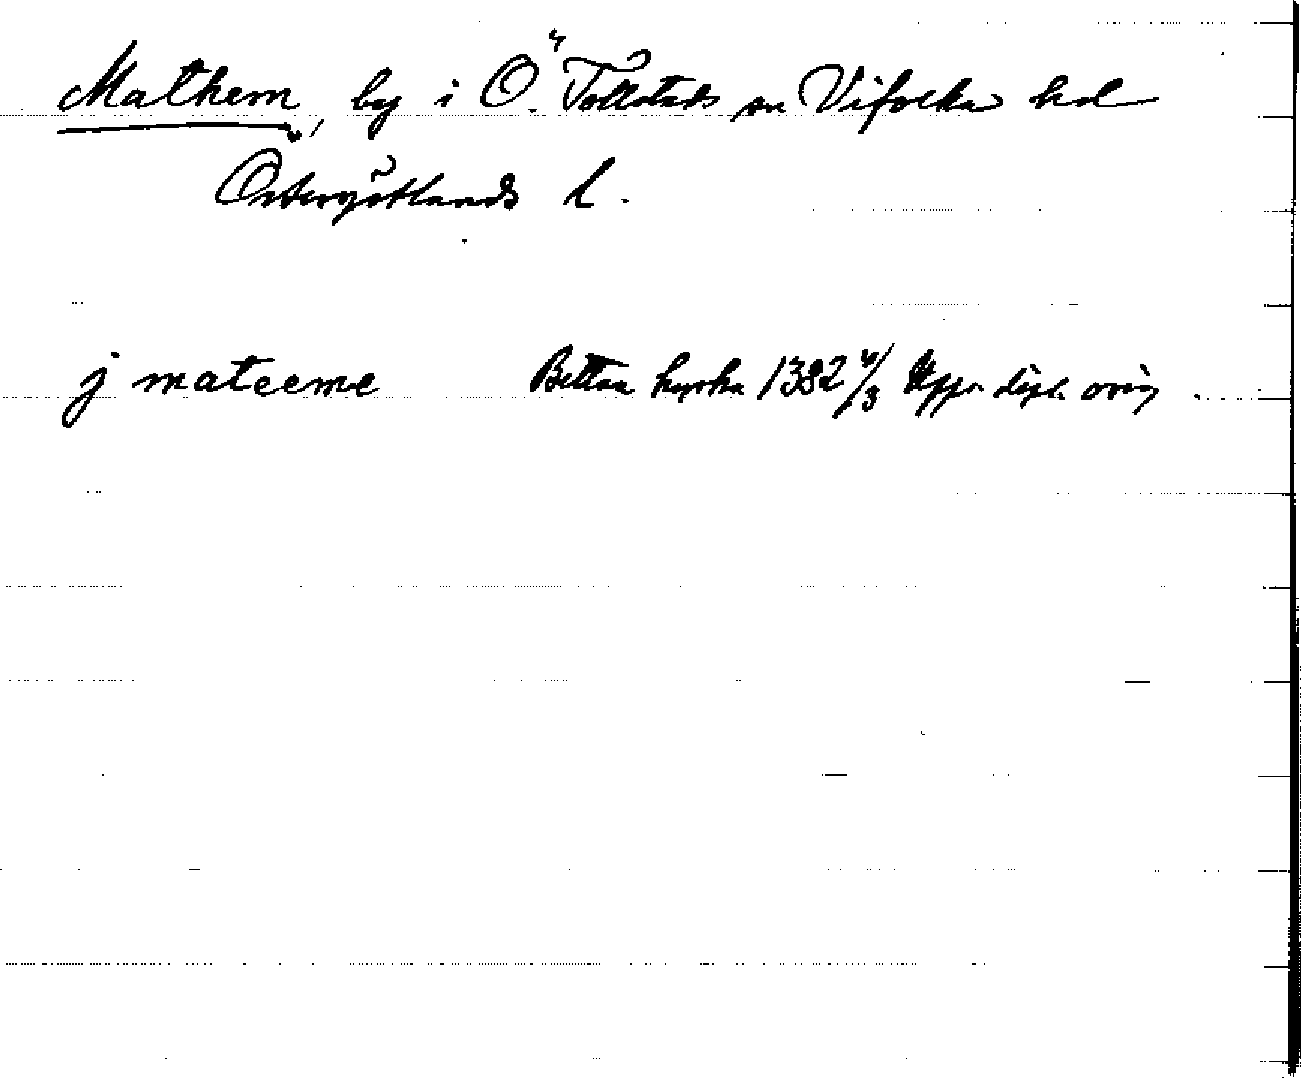 Mathem, by i Ö. Tollstads sn Vifolka hd
Östergötlands l.
j mateeme Bettna kyrka 1382 4/3 Upps. dipl. orig